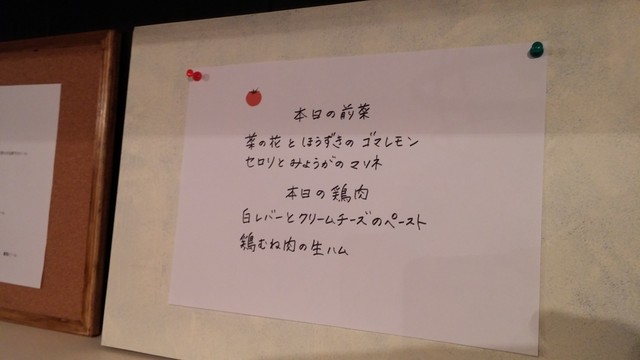 本日の前菜
菜の花とほうずきのゴマレモン
セロリとみょうがのマリネ
本日の鶏肉
白レバーとクリームチーズのペースト
鶏むね肉の生ハム